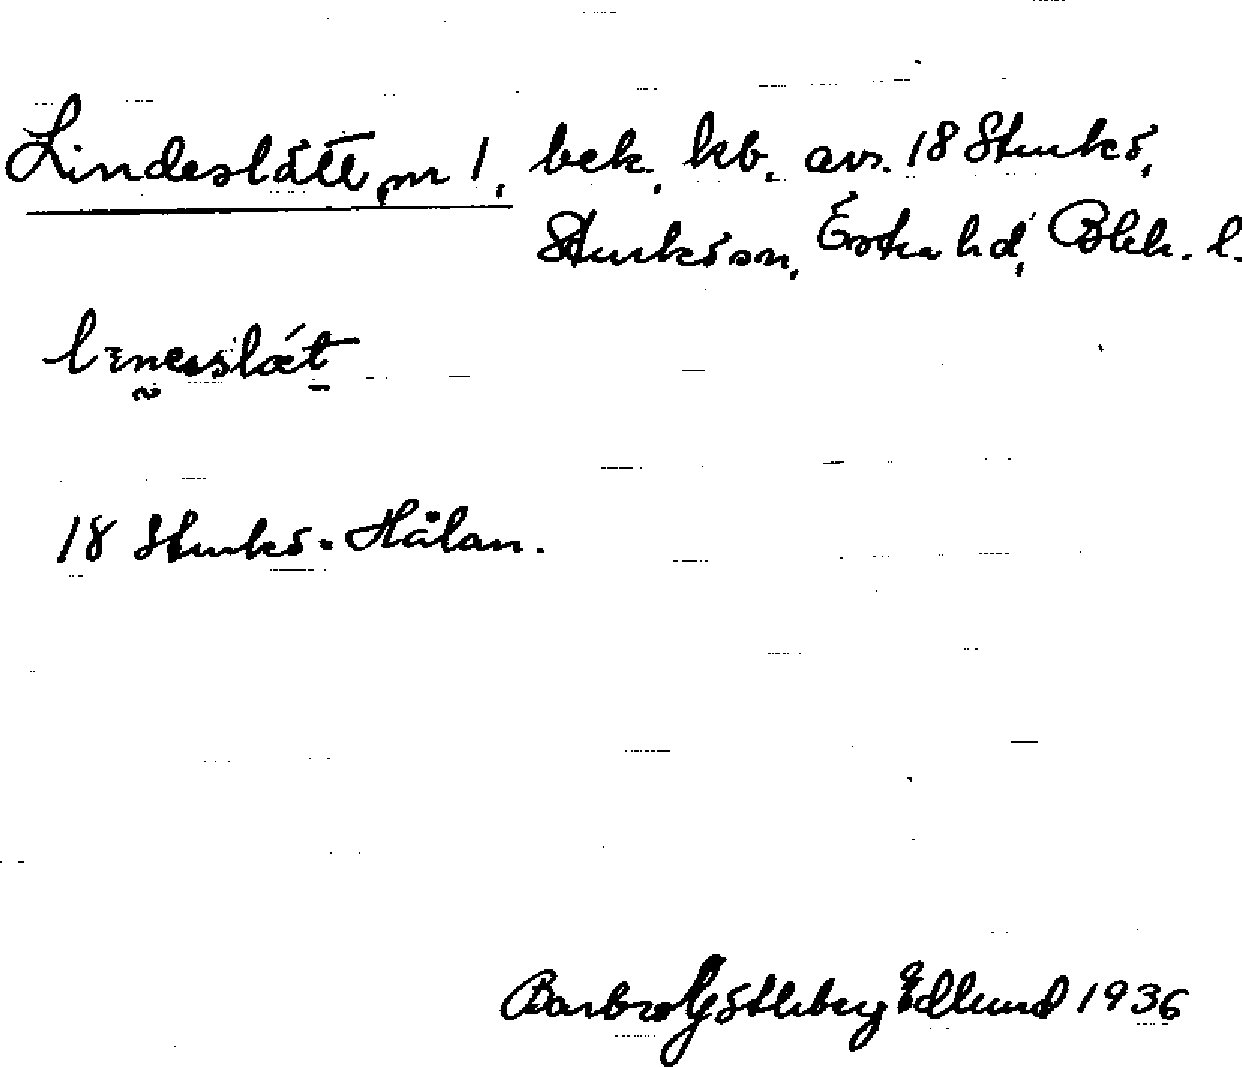 Lindeslått, nr 1, bek. kb. avs. 18 Sturkö,
Sturkö sn, Östra hd, Blek. l.
18 Sturkö. Hålan.
Barbro Götleberg Edlund 1936